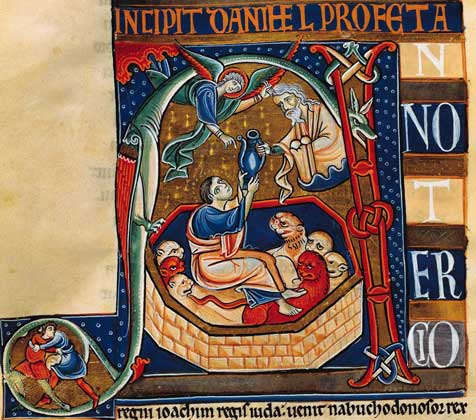 INCIPIT DANIHEL PROFETA
A N
NO
T
ER
CIO
regni ioachim regis iuda. uenit nabuchodonosor rex